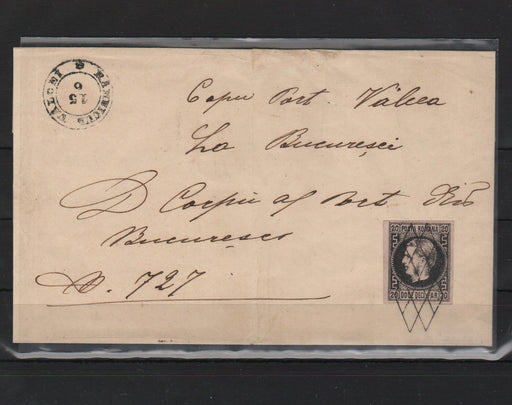 RÎMNICUS VALCHI
15
6
Capu Port. Vâlcea
La Bucuresci
D Corpu af Port din
Bucuresci
No. 727
20 POSTA ROMANA 20
20 DOUE DECI PAR 20